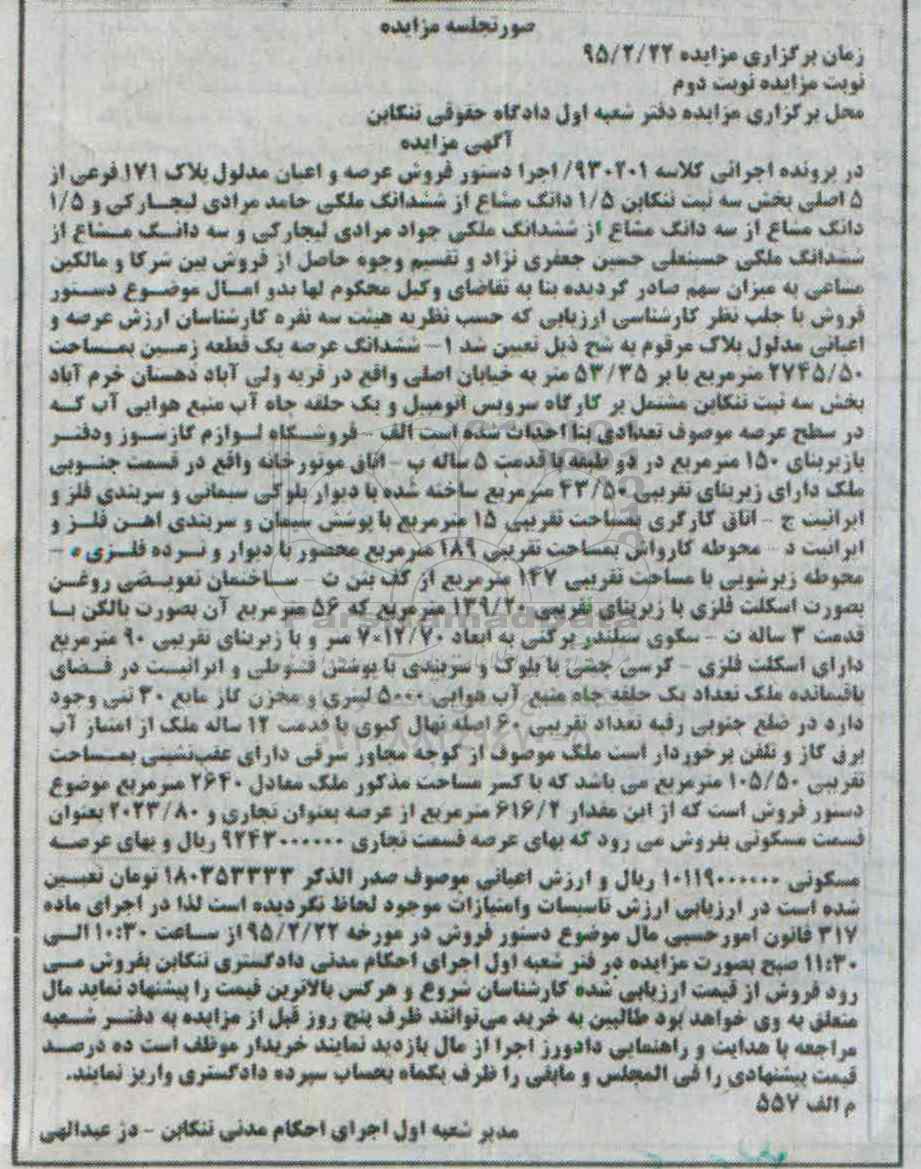 صورتجلسه مزایده
زمان برگزاری مزایده ۹۵/۲/۲۲
نوبت مزایده نوبت دوم
محل برگزاری مزایده دفتر شعبه اول دادگاه حقوقی تنکابن
آگهی مزایده
در پرونده اجرائی کلاسه ۹۳۰۲۰۱/ اجرا دستور فروش عرصه و اعیان مدلول پلاک ۱۷۱ فرعی از
۵ اصلی بخش سه ثبت تنکابن ۱/۵ دانگ مشاع از ششدانگ ملکی حامد مرادی لیچارکی و ۱/۵
دانگ مشاع از سه دانگ مشاع از ششدانگ ملکی جواد مرادی لیچارکی و سه دانگ مشاع از
ششدانگ ملکی حسینعلی حسین جعفری نژاد و تقسیم وجوه حاصل از فروش بین شرکا و مالکین
مشاعی به میزان سهم صادر گردیده بنا به تقاضای وکیل محکوم لها بدو امال موضوع دستور
فروش با جلب نظر کارشناسی ارزیابی که حسب نظریه هیئت سه نفره کارشناسان ارزش عرصه و
اعیانی مدلول پلاک مرقوم به شح ذیل تعیین شد ۱- ششدانگ عرصه یک قطعه زمین بمساحت
۲۷۴۵/۵۰ مترمربع با بر ۵۳/۳۵ متر به خیابان اصلی واقع در قریه ولی آباد دهستان خرم آباد
بخش سه ثبت تنکابن مشتمل بر کارگاه سرویس اتومبیل و یک حلقه چاه آب منبع هوایی آب که
در سطح عرصه موصوف تعدادی بنا احداث شده است الف - فروشگاه لوازم گازسوز ودفتر
بازیربنای ۱۵۰ مترمربع در دو طبقه با قدمت ۵ ساله ب - اتاق موتورخانه واقع در قسمت جنوبی
ملک دارای زیربنای تقریبی ۴۳/۵۰ مترمربع ساخته شده با دیوار بلوکی سیمانی و سربندی فلز و
ایرانیت ج - اتاق کارگری بمساحت تقریبی ۱۵ مترمربع با پوشش سیمان و سربندی اهن فلز و
ایرانیت د - محوطه کارواش بمساحت تقریبی ۱۸۹ مترمربع محصور با دیوار و نرده فلزی ه -
محوطه زیرشویی با مساحت تقریبی ۱۴۷ مترمربع از کف بتن ث - ساختمان تعویضی روغن
بصورت اسکلت فلزی با زیربنای تقریبی ۱۳۹/۲۰ مترمربع که ۵۶ متر مربع آن بصورت بالکن با
قدمت ۳ ساله ث - سکوی سیلندر پرکنی به ابعاد ۱۲/۷۰×۷ متر و با زیربنای تقریبی ۹۰ مترمربع
دارای اسکلت فلزی - کرسی چینی با بلوک و سربندی با پوشش قوطی و ایرانیت در فضای
باقیمانده ملک تعداد یک حلقه چاه منبع آب هوایی ۵۰۰۰ لیتری و مخزن گاز مایع ۳۰ تنی وجود
دارد در ضلع جنوبی رقبه تعداد تقریبی ۶۰ اصله نهال کیوی با قدمت ۱۲ ساله ملک از امتیاز آب
برق گاز و تلفن برخوردار است ملک موصوف از کوچه مجاور شرقی دارای عقب‌نشینی بمساحت
تقریبی ۱۰۵/۵۰ مترمربع می باشد که با کسر مساحت مذکور ملک معادل ۲۶۴۰ مترمربع موضوع
دستور فروش است که از این مقدار ۶۱۶/۲ مترمربع از عرصه بعنوان تجاری و ۲۰۲۳/۸۰ بعنوان
قسمت مسکونی بفروش می رود که بهای عرصه قسمت تجاری ۹۲۴۳۰۰۰۰۰۰ ریال و بهای عرصه
مسکونی ۱۰۱۱۹۰۰۰۰۰۰ ریال و ارزش اعیانی موصوف صدر الذکر ۱۸۰۳۵۳۳۳۳ تومان تعیین
شده است در ارزیابی ارزش تاسیسات وامتیازات موجود لحاظ نگردیده است لذا در اجرای ماده
۳۱۷ قانون امورحسبی مال موضوع دستور فروش در مورخه ۹۵/۲/۲۲ از ساعت ۱۰:۳۰ الی
۱۱:۳۰ صبح بصورت مزایده در فتر شعبه اول اجرای احکام مدنی دادگستری تنکابن بفروش می
رود فروش از قیمت ارزیابی شده کارشناسان شروع و هرکس بالاترین قیمت را پیشنهاد نماید مال
متعلق به وی خواهد بود طالبین به خرید می‌توانند ظرف پنج روز قبل از مزایده به دفتر شعبه
مراجعه با هدایت و راهنمایی دادورز اجرا از مال بازدید نمایند خریدار موظف است ده درصد
قیمت پیشنهادی را فی المجلس و مابقی را ظرف یکماه بحساب سپرده دادگستری واریز نمایند.
م الف ۵۵۷
مدیر شعبه اول اجرای احکام مدنی تنکابن - دژ عبدالهی